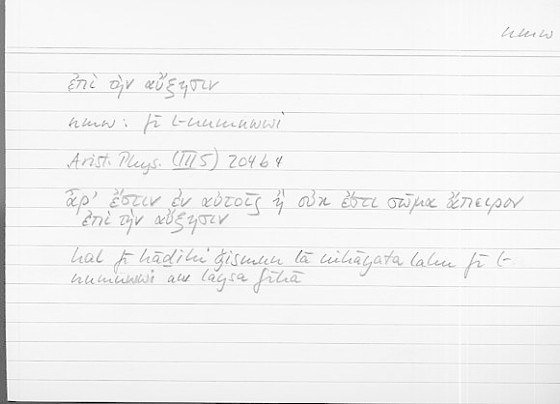 nmw
ἐπὶ τὴν αὔξησιν
nmw: fī l-numuwwi
Arist. Phys. (III 5) 204b4
ἆρ' ἔστιν ἐν αὐτοῖς ἢ οὐκ ἔστι σῶμα ἄπειρον
ἐπὶ τὴν αὔξησιν
hal fī hāḏihi ǧismun lā nihāyata lahu fī l-
numuwwi am laysa fīhā